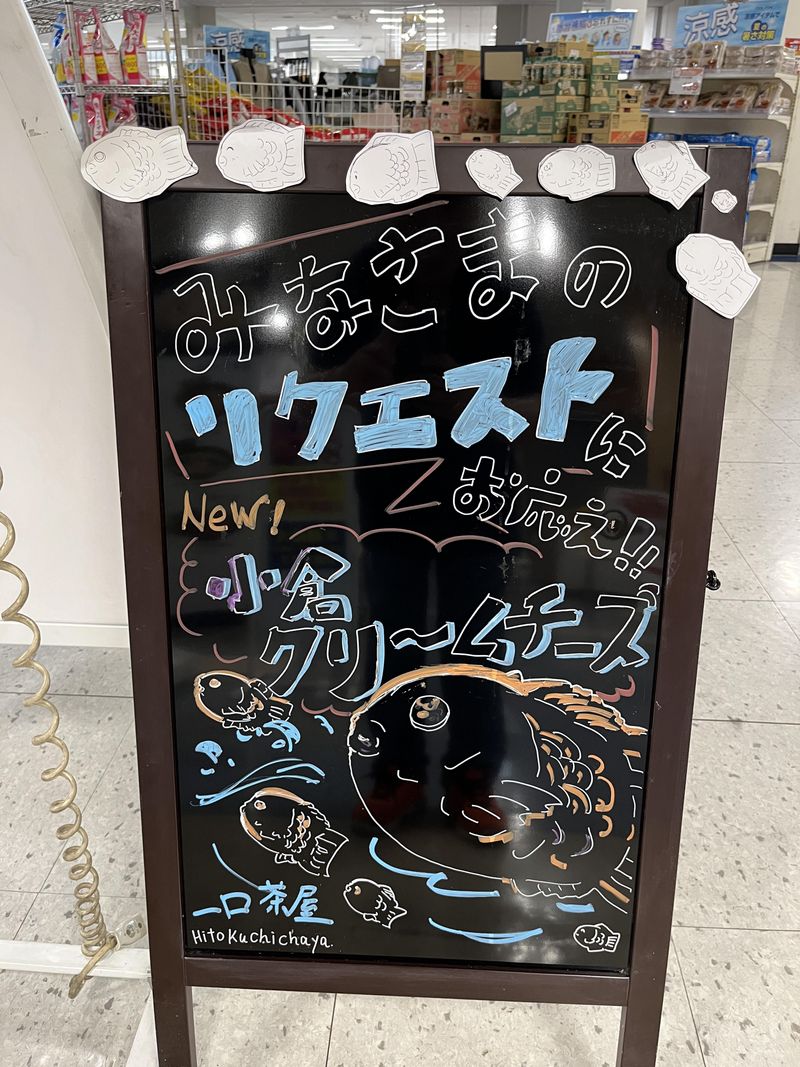 みなさまの
リクエストに
お応え!!
New!
小倉
クリームチーズ
一口茶屋
Hitokuchichaya
涼感
涼感